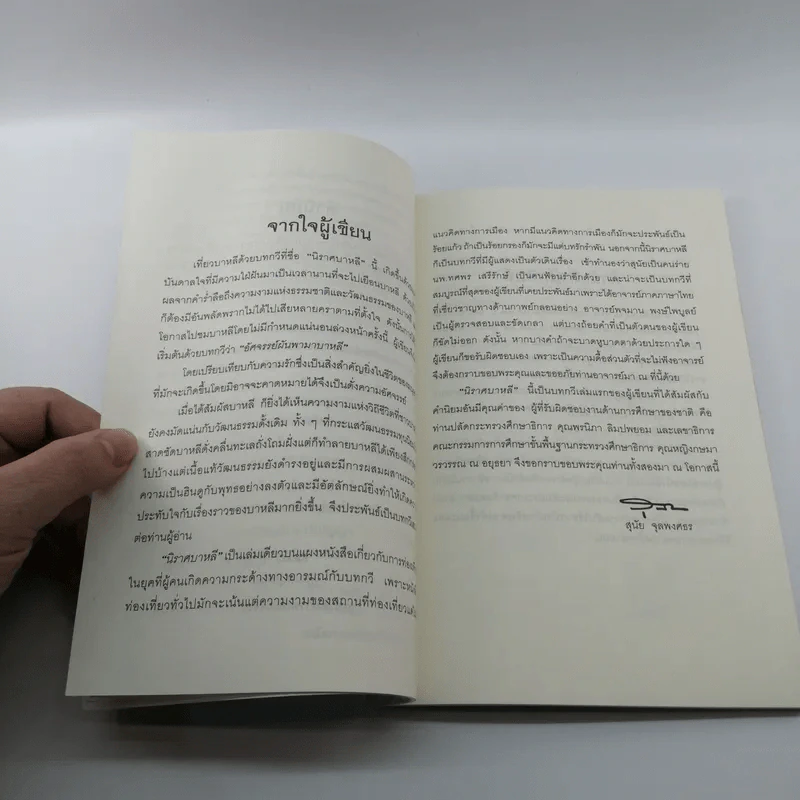 จากใจผู้เขียน
เที่ยวบาหลีด้วยบทกวีที่ชื่อ "นิราศบาหลี" นี้ เกิดขึ้นด้วย
บันดาลใจที่มีความใฝ่ฝันมาเป็นเวลานานที่จะไปเยือนบาหลี ด้วย
ผลจากคำร่ำลือถึงความงามแห่งธรรมชาติและวัฒนธรรมของบาหลี
ก็ต้องมีอันพลัดพรากไม่ได้ไปเสียหลายคราตามที่ตั้งใจ ดังนั้น
โอกาสไปชมบาหลีโดยไม่มีกำหนดแน่นอนล่วงหน้าครั้งนี้ ผู้เขียน
เริ่มต้นด้วยบทกวีว่า "อัศจรรย์ผันพามาบาหลี"
โดยเปรียบเทียบกับความรักซึ่งเป็นสิ่งสำคัญยิ่งในชีวิตของ
ที่มักจะเกิดขึ้นโดยมิอาจจะคาดหมายได้จึงเป็นดั่งความอัศจรรย์
เมื่อได้สัมผัสบาหลี ก็ยิ่งได้เห็นความงามแห่งวิถีชีวิตที่ชาว
ยังคงมัดแน่นกับวัฒนธรรมดั้งเดิม ทั้ง ๆ ที่กระแสวัฒนธรรม
สาดซัดบาหลีดั่งคลื่นทะเลถั่งโถมฝั่งแต่ก็ทำลายบาหลีได้เพียงสึก
ไปบ้างแต่เนื้อแท้วัฒนธรรมยังดำรงอยู่และมีการผสมผสาน
ความเป็นฮินดูกับพุทธอย่างลงตัวและมีอัตลักษณ์ยิ่งทำให้เกิด
ประทับใจกับเรื่องราวของบาหลีมากยิ่งขึ้น จึงประพันธ์เป็นบทกวี
ต่อท่านผู้อ่าน
"นิราศบาหลี" เป็นเล่มเดียวบนแผงหนังสือเกี่ยวกับการท่อง
ในยุคที่ผู้คนเกิดความกระด้างทางอารมณ์กับบทกวี เพราะ
ท่องเที่ยวทั่วไปมักจะเน้นแต่ความงามของสถานที่ท่องเที่ยว
แนวคิดทางการเมือง หากมีแนวคิดทางการเมืองก็มักจะประพันธ์เป็น
ร้อยแก้ว ถ้าเป็นร้อยกรองก็มักจะมีแต่บทรักรำพัน นอกจากนี้นิราศบาหลี
ก็เป็นบทกวีที่มีผู้แสดงเป็นตัวเดินเรื่อง เช้าทำนองว่าสุนัยเป็นคนร่าย
นพ.ทศพร เสรีรักษ์ เป็นคนฟ้อนรำอีกด้วย และน่าจะเป็นบทกวีที่
สมบูรณ์ที่สุดของผู้เขียนที่เคยประพันธ์มาเพราะได้อาจารย์ภาคภาษาไทย
ที่เชี่ยวชาญทางด้านกาพย์กลอนอย่าง อาจารย์พจมาน พงษ์ไพบูลย์
เป็นผู้ตรวจสอบและขัดเกลา แต่บางถ้อยคำที่เป็นตัวตนของผู้เขียน
ก็ขัดไม่ออก ดังนั้น หากบางคำถ้าจะบาดหูบาดตาด้วยประการใด ๆ
ผู้เขียนก็ขอรับผิดชอบเอง เพราะเป็นความดื้อส่วนตัวที่จะไม่ฟังอาจารย์
จึงต้องกราบขอบพระคุณและขออภัยท่านอาจารย์มา ณ ที่นี้ด้วย
"นิราศบาหลี" นี้เป็นบทกวีเล่มแรกของผู้เขียนที่ได้สัมผัสกับ
คำนิยมอันมีคุณค่าของ ผู้ที่รับผิดชอบงานด้านการศึกษาของชาติ คือ
ท่านปลัดกระทรวงศึกษาธิการ คุณพรนิภา ลิมปพยอม และเลขาธิการ
คณะกรรมการการศึกษาขั้นพื้นฐานกระทรวงศึกษาธิการ คุณหญิงกษมา
วรวรรณ ณ อยุธยา จึงขอกราบขอบพระคุณท่านทั้งสองมา ณ โอกาสนี้
สุนัย จุลพงศธร